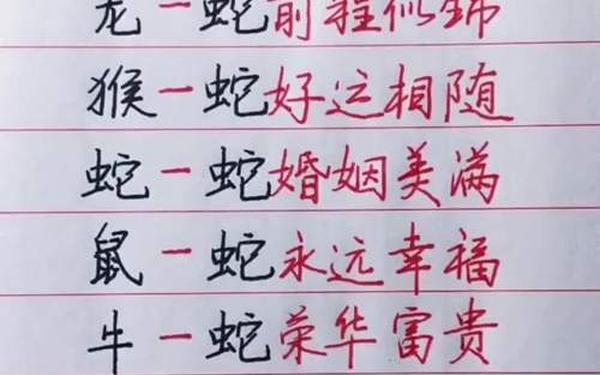 龙一蛇前程似锦
猴一蛇好运相随
蛇一蛇婚姻美满
鼠一蛇永远幸福
牛一蛇荣华富贵